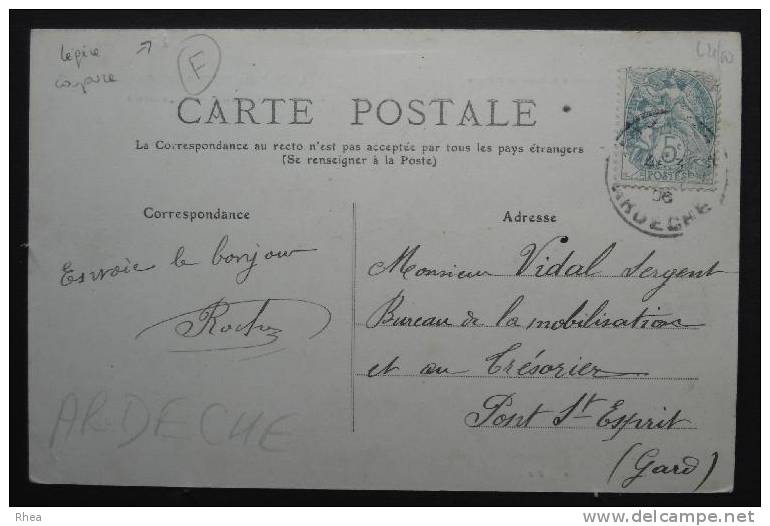 légère
coupure
F
CARTE POSTALE
La Correspondance au recto n'est pas acceptée par tous les pays étrangers
(Se renseigner à la Poste)
5c
POSTES
06
ARDECHE
Correspondance
Envoie le bonjour
Adresse
Monsieur Vidal Sergent
Bureau de la mobilisation
et au Trésorier
Pont St Esprit
(Gard)
ARDECHE
Rhea
www.delcampe.net